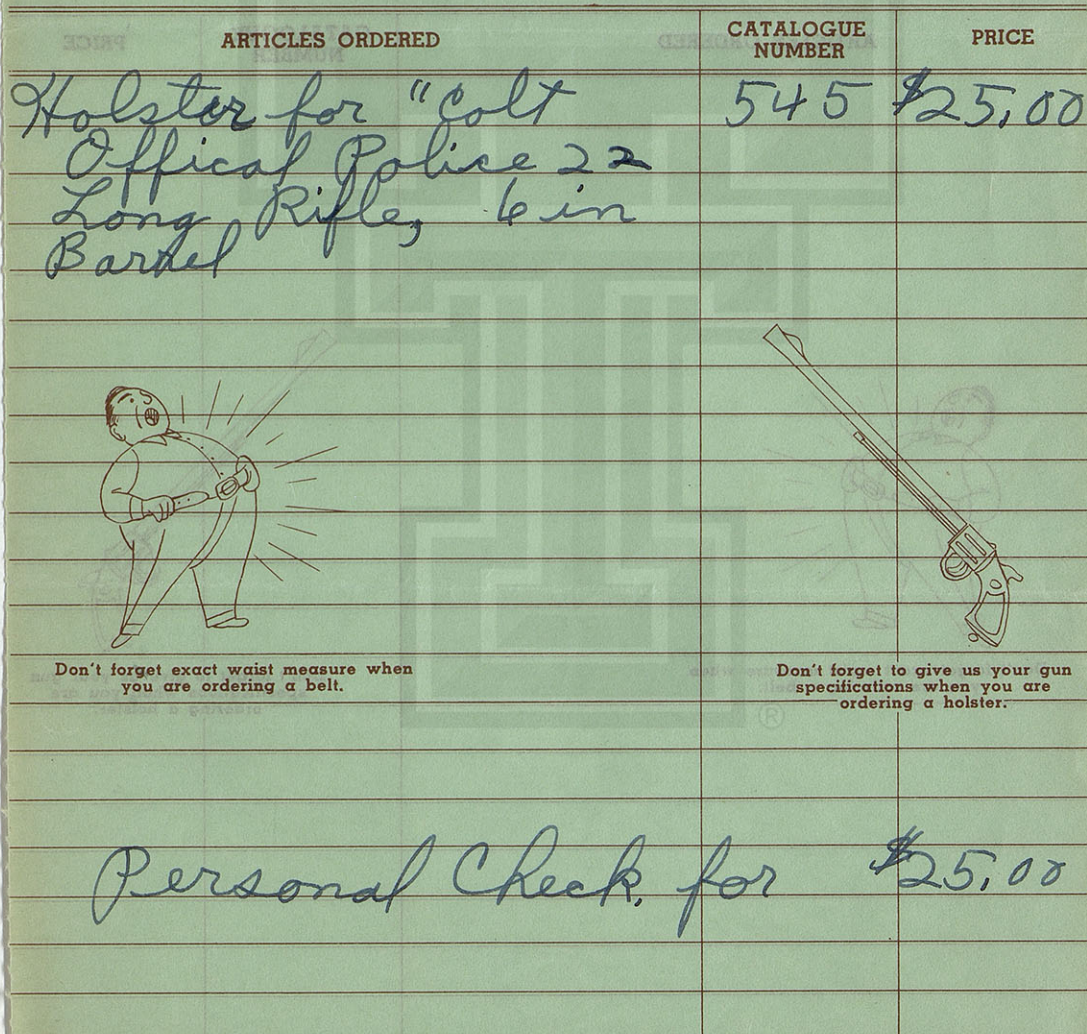 ARTICLES ORDERED
CATALOGUE NUMBER
PRICE
Holster for "Colt 545 $25.00
Offical Police 22
Long Rifle, 6 in
Barrel
Don't forget exact waist measure when
you are ordering a belt.
Don't forget to give us your gun
specifications when you are
ordering a holster.
Personal Check, for $25.00
®